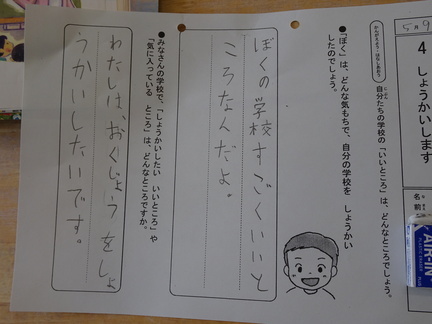 5月9
4 しょうかいします
名前
かんがえよう・はなしあおう
自分たちの学校の「いいところ」は、どんなところでしょう。
●「ぼく」は、どんな気もちで、自分の学校を しょうかい
したのでしょう。
ぼくの学校すごくいいと
ころなんだよ。
●みなさんの学校で、「しょうかいしたい いいところ」や
「気に入っている ところ」は、どんなところですか。
わたしは、おくじょうをしょ
うかいしたいです。